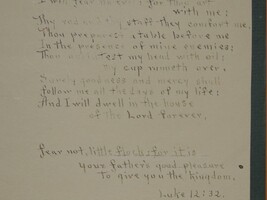 I will fear no evil; for Thou art
with me;
Thy rod and Thy staff they comfort me.
Thou preparest a table before me
In the presence of mine enemies:
Thou
my head with oil;
My cup runneth over.
Surely goodness and mercy shall
follow me all the days of my life:
And I will dwell in the house
of the Lord forever.
Fear not, little flock; for it is
your Father's good pleasure
To give you the kingdom.
Luke 12:32.